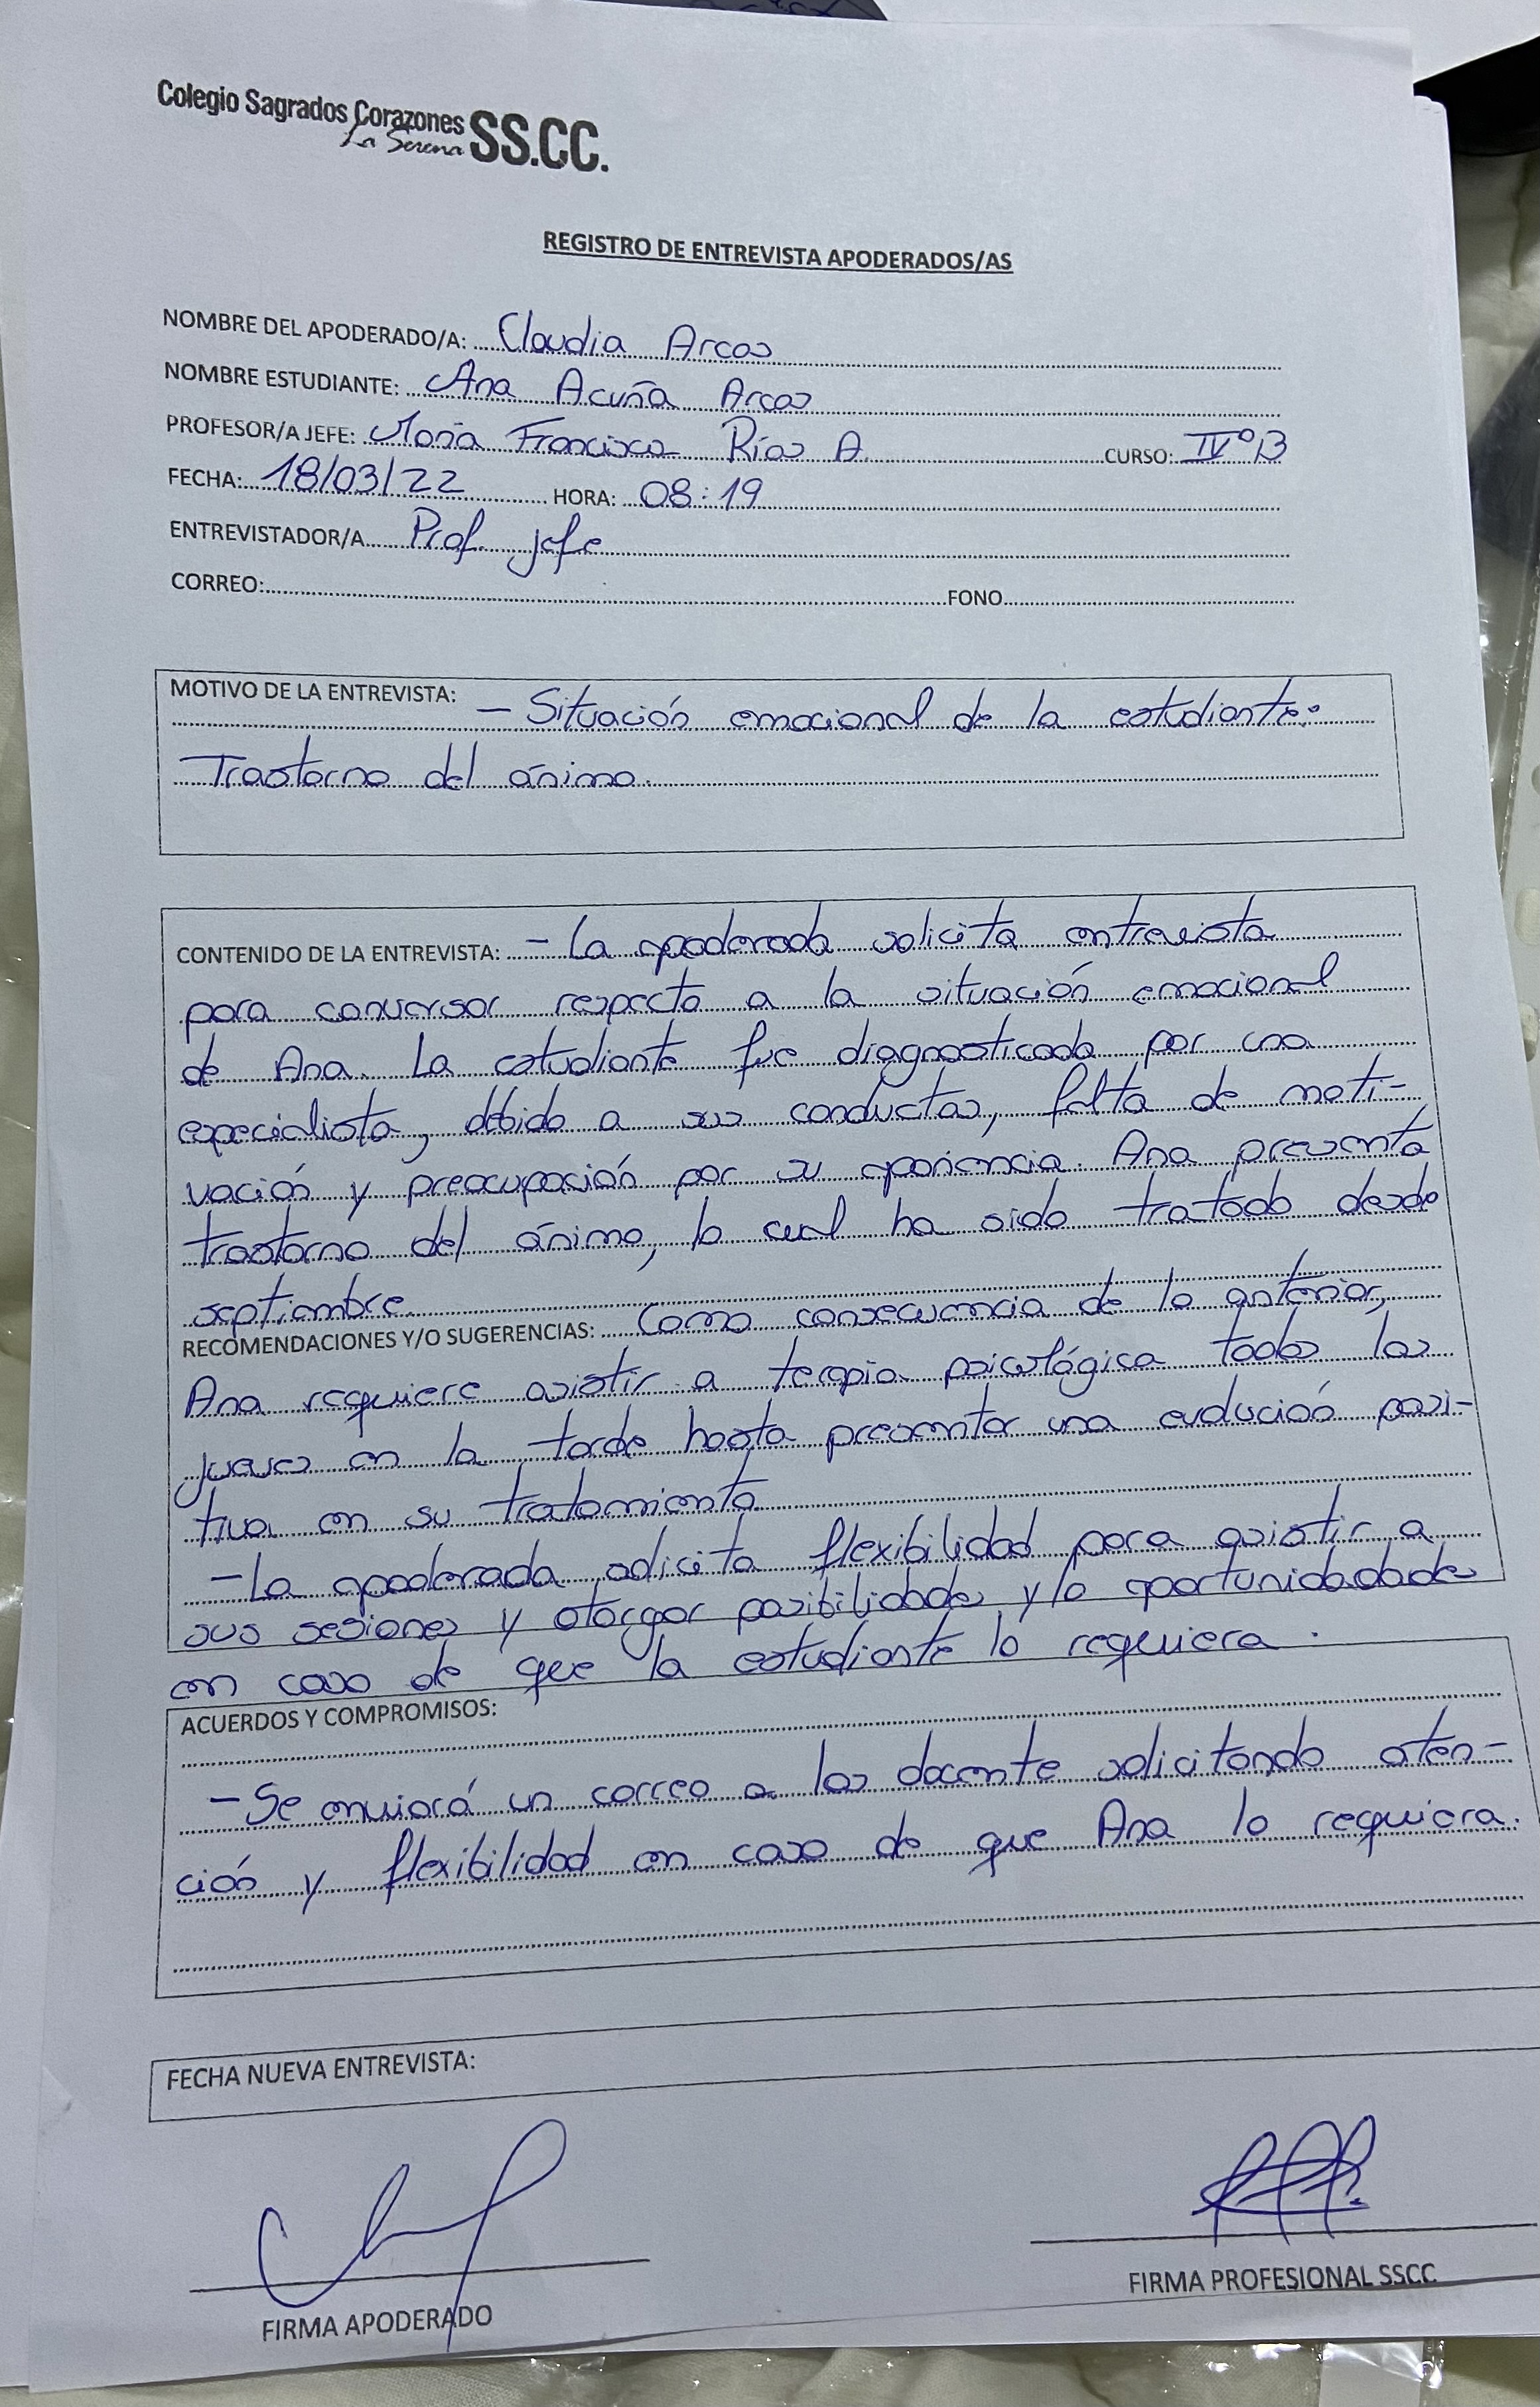 Colegio Sagrados Corazones
La Serena SS.CC.
REGISTRO DE ENTREVISTA APODERADOS/AS
NOMBRE DEL APODERADO/A: Claudia Arcos
NOMBRE ESTUDIANTE: Ana Acuña Arcos
PROFESOR/A JEFE: María Francisca Ríos A. CURSO: IVºB
FECHA: 18/03/22 HORA: 08:19
ENTREVISTADOR/A Prof. jefe
CORREO: FONO
MOTIVO DE LA ENTREVISTA: - Situación emocional de la estudiante:
Trastorno del ánimo.
CONTENIDO DE LA ENTREVISTA: - La apoderada solicita entrevista
para conversar respecto a la situación emocional
de Ana. La estudiante fue diagnosticada por una
especialista, debido a sus conductas, falta de moti-
vación y preocupación por su apariencia. Ana presenta
trastorno del ánimo, lo cual ha sido tratado desde
septiembre.
RECOMENDACIONES Y/O SUGERENCIAS: Como consecuencia de lo anterior,
Ana requiere asistir a terapia psicológica todos los
jueves en la tarde hasta presentar una evolución posi-
tiva en su tratamiento.
- La apoderada solicita flexibilidad para asistir a
sus sesiones y otorgar posibilidades y/o oportunidadades
en caso de que la estudiante lo requiera.
ACUERDOS Y COMPROMISOS:
- Se enviará un correo a los docente solicitando aten-
ción y flexibilidad en caso de que Ana lo requiera.
FECHA NUEVA ENTREVISTA:
FIRMA APODERADO
FIRMA PROFESIONAL SSCC